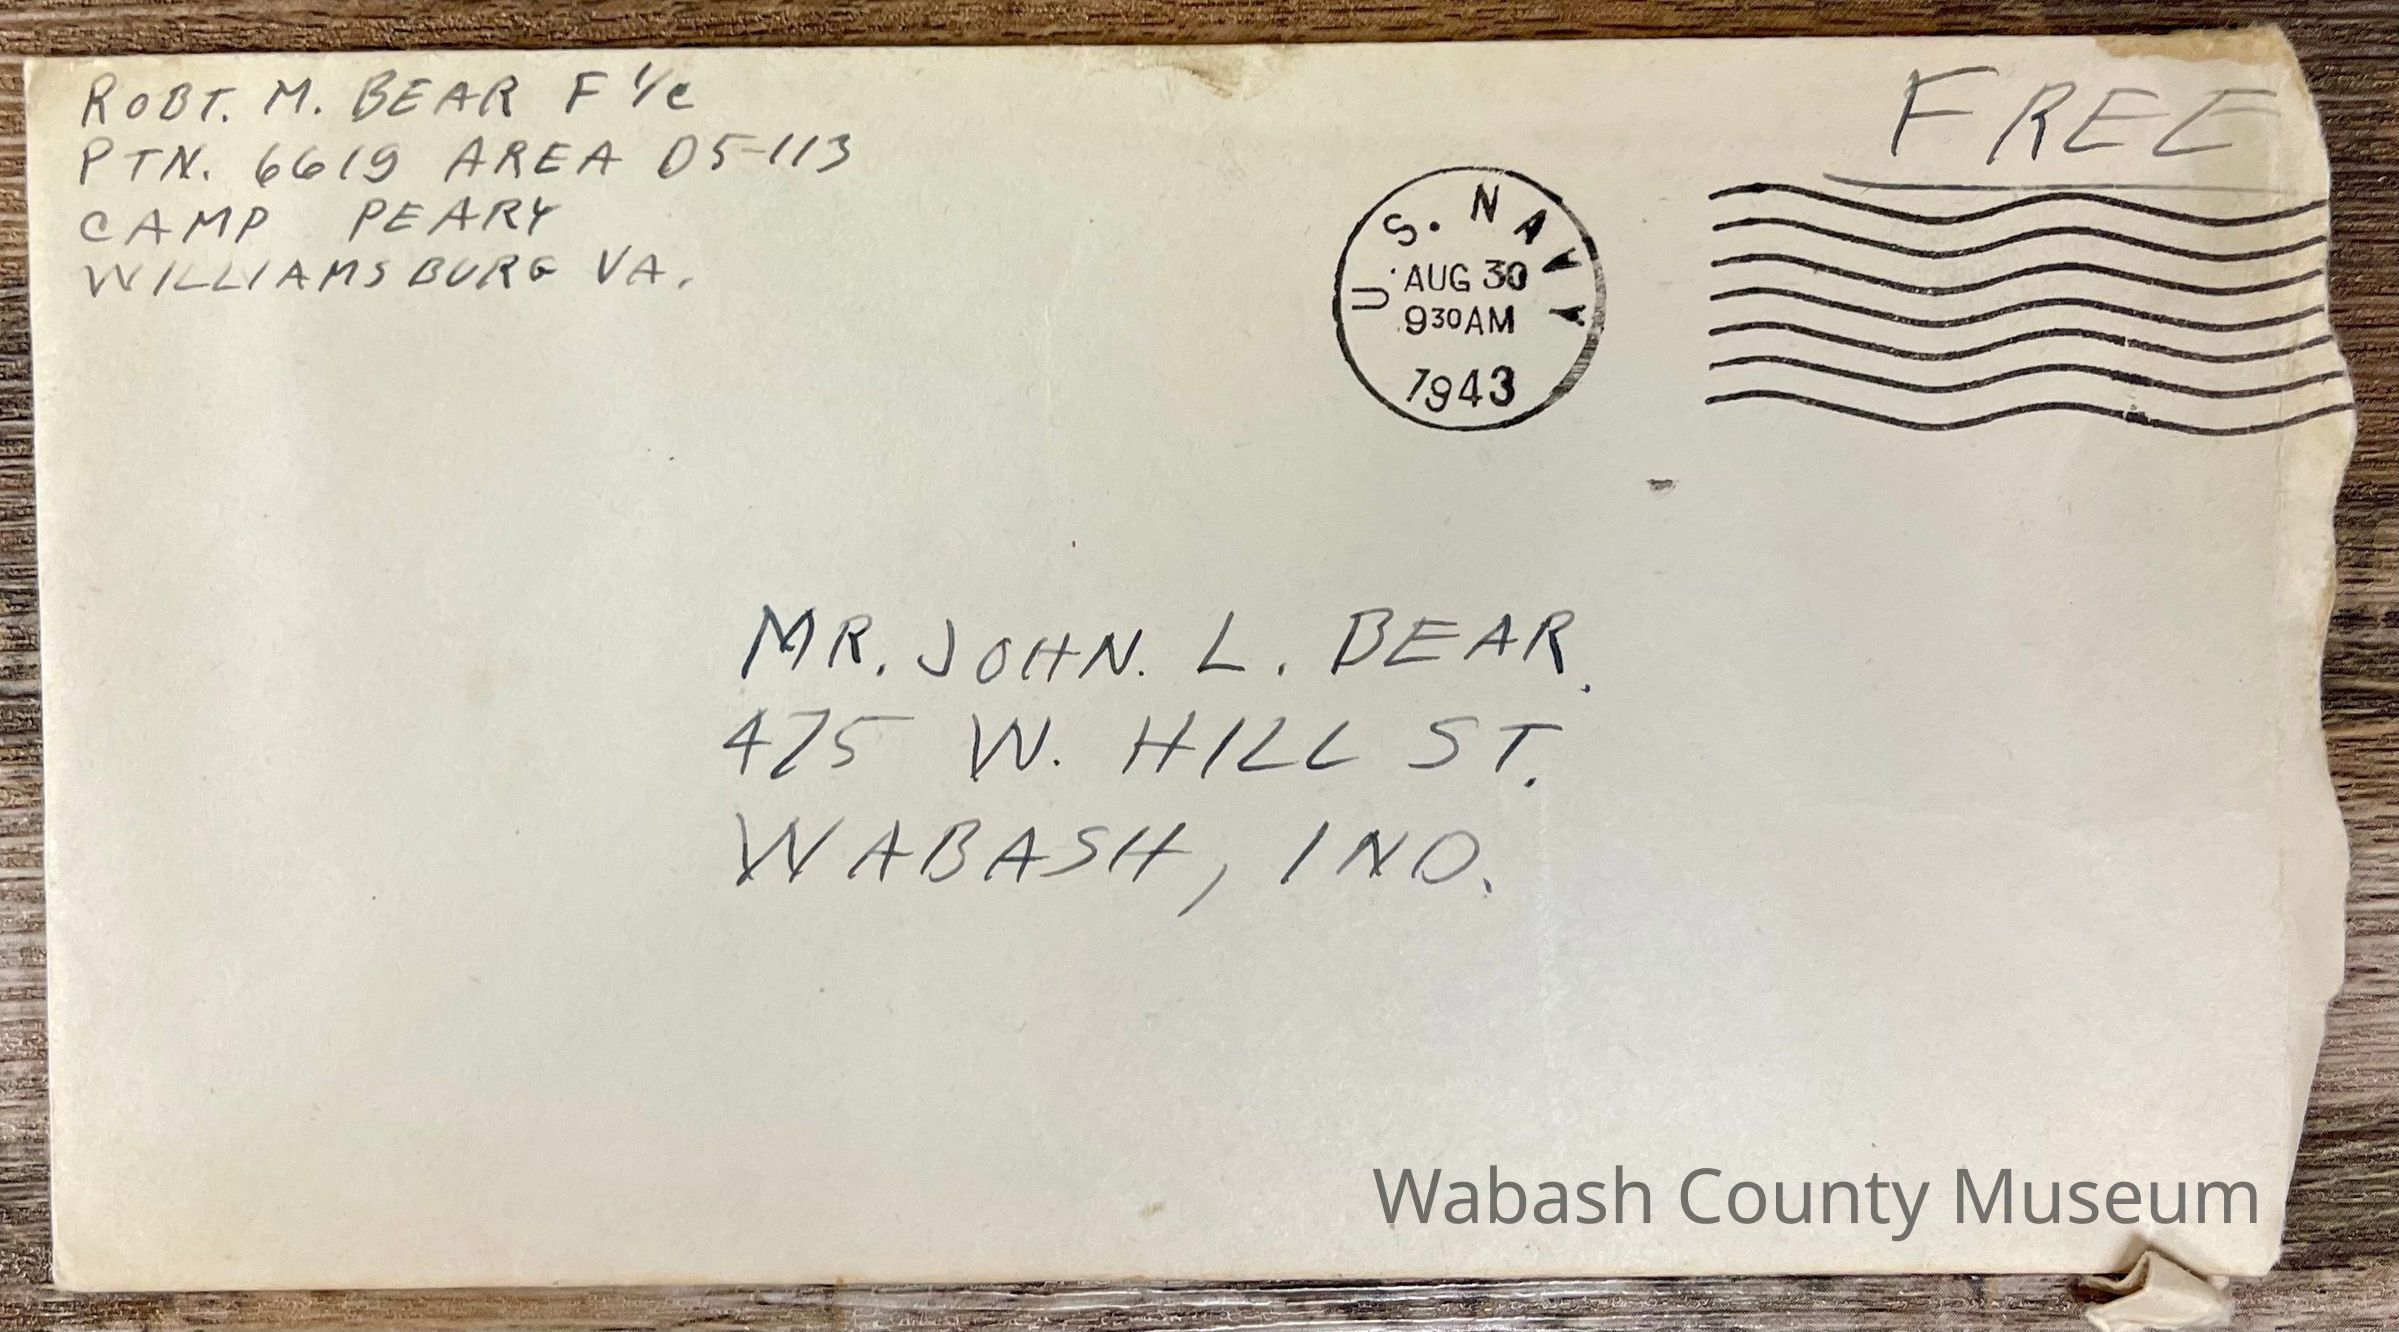 ROBT. M. BEAR F 1/c
PTN. 6619 AREA D5-113
CAMP PEARY
WILLIAMSBURG VA.
FREE
U. S. NAVY
AUG 30
930AM
1943
MR. JOHN. L. BEAR.
475 W. HILL ST.
WABASH, IND.
Wabash County Museum